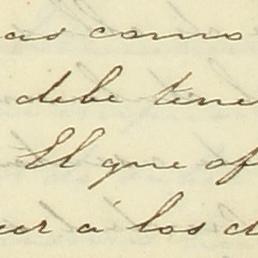 as como
debe tene
El que of
er á los d